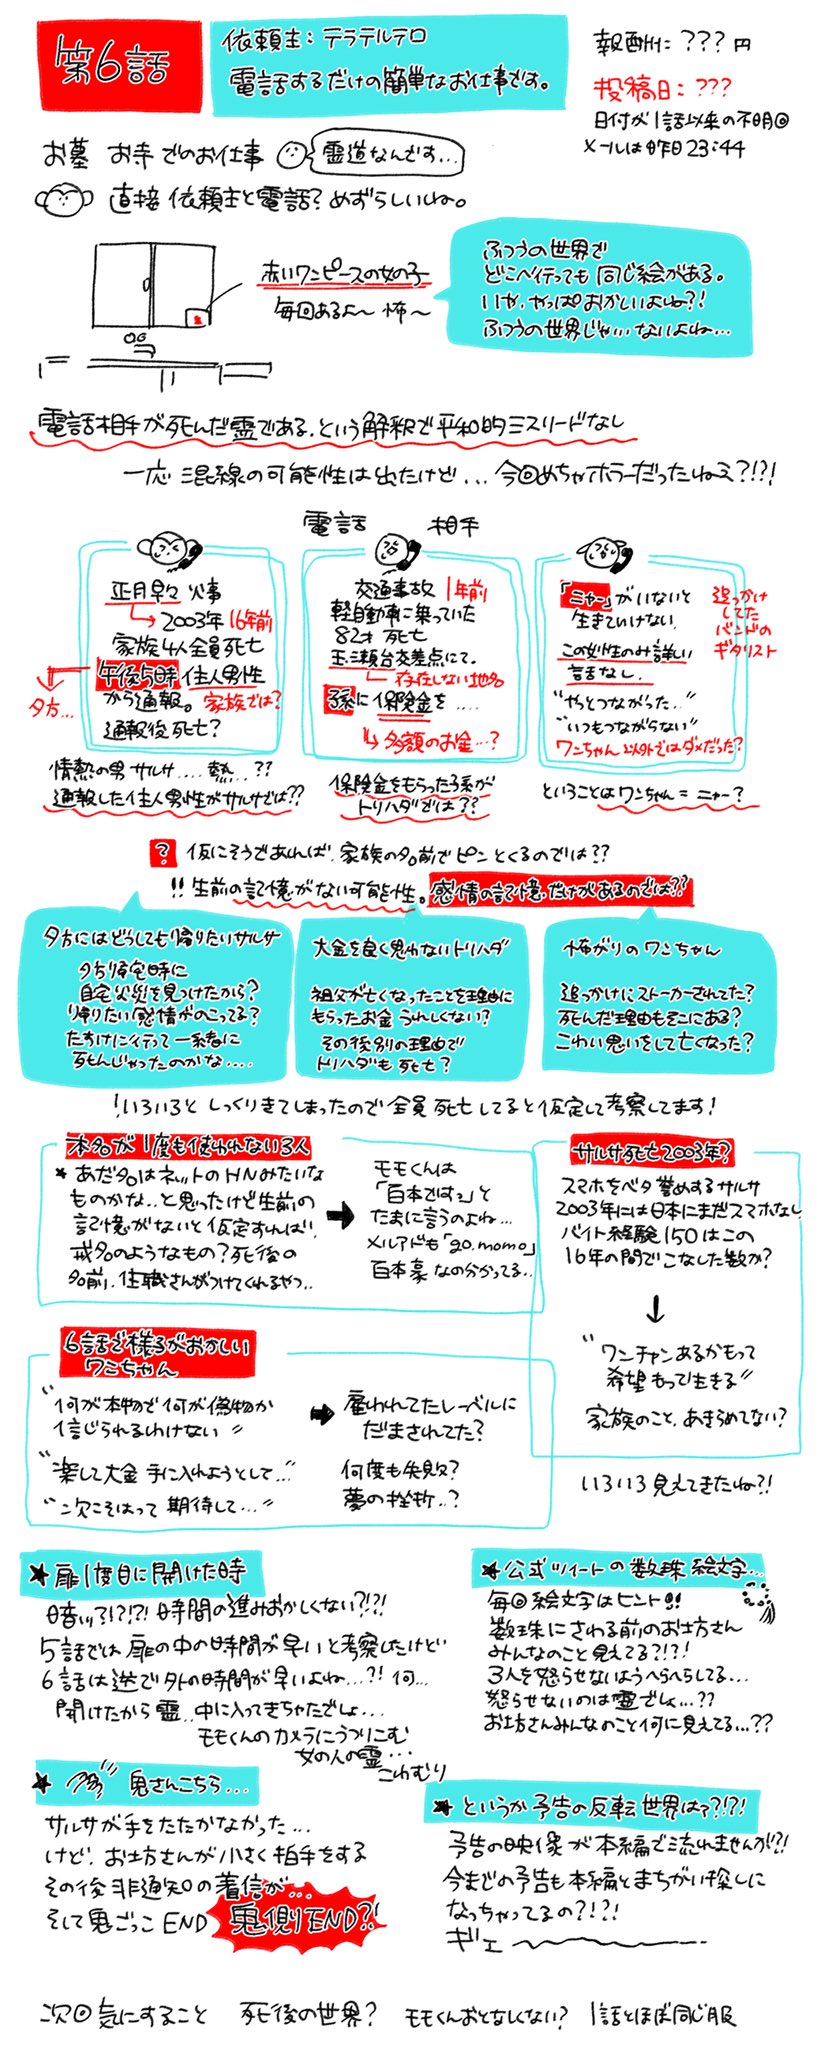 第6話
依頼主:テラテルテロ
電話するだけの簡単なお仕事です。
報酬:???円
投稿日:???
日付が1話以来の不明回
メールは昨日23:44
お墓 お寺でのお仕事
霊道なんです...
直接依頼主と電話?めずらしいね。
赤いワンピースの女の子
毎回あるよ〜怖〜
ふつうの世界で
どこへ行っても同じ絵がある。
いや、やっぱおかしいよね?!
ふつうの世界じゃ...ないよね...
電話相手が死んだ霊である、という解釈で平和的ミスリードなし
一応混線の可能性は出たけど...今回めちゃホラーだったねえ?!?!
電話 相手
正月早々火事
→2003年 16年前
家族4人全員死亡
午後5時 住人男性
から通報。家族では?
夕方...
通報後死亡?
情熱の男サルサ....熱..??
通報した住人男性がサルサでは??
交通事故 1年前
軽自動車に乗っていた
82才 死亡
玉瀬台交差点にて。
→存在しない地名
子孫に保険金を....
→多額のお金...?
保険金をもらった子孫が
トリハダでは??
「ニャー」がいないと
生きていけない。
追っかけ
してた
バンドの
ギタリスト
この女性のみ詳しい
話なし。
"やっとつながった.."
"いつもつながらない"
ワンちゃん以外ではダメだった?
ということはワンちゃん=ニャー?
? 仮にそうであれば、家族の名前でピンとくるのでは??
!!生前の記憶がない可能性。感情の記憶だけがあるのでは??
夕方にはどうしても帰りたいサルサ
夕方帰宅時に
自宅火災を見つけたから?
帰りたい感情がのこってる?
たすけに行って一緒に
死んじゃったのかな....
大金を良く思わないトリハダ
祖父が亡くなったことを理由に
もらったお金うれしくない?
その後別の理由で
トリハダも死亡?
怖がりのワンちゃん
追っかけにストーカーされてた?
死んだ理由もそこにある?
こわい思いをして亡くなった?
!いろいろとしっくりきてしまったので全員死亡してると仮定して考察してます!
本名が1度も使われない3人
*あだ名はネットのHNみたいな
ものかな..と思ったけど生前の
記憶がないと仮定すれば、
戒名のようなもの?死後の
名前、住職さんがつけてくれるやつ..
➡
モモくんは
「百本です」と
たまに言うのよね...
メルアドも「go.momo」
百本豪なの分かってる..
サルサ死亡2003年?
スマホをベタ誉めするサルサ
2003年には日本にまだスマホなし
バイト経験150はこの
16年の間でこなした数か?
↓
"ワンチャンあるかもって
希望もって生きる"
家族のこと、あきらめてない?
6話で様子がおかしい
ワンちゃん
"何が本物で何が偽物か
信じられるわけない"
"楽して大金手に入れようとして..."
"次こそはって期待して..."
➡
雇われてたレーベルに
だまされてた?
何度も失敗?
夢の挫折..?
いろいろ見えてきたね?!
★扉1度目に開けた時
暗いッ?!?!?!時間の進みおかしくない?!?!
5話では扉の中の時間が早いと考察したけど
6話は逆で外の時間が早いよね...?!何...
開けたから霊..中に入ってきちゃたでしょ...
モモくんのカメラにうつりこむ
女の人の霊...
こわむり
*公式ツイートの数珠絵文字...
毎回絵文字はヒント!!
数珠にさわる前のお坊さん
みんなのこと見えてる?!?!
3人を怒らせないようへらへらしてる...
怒らせないのは霊でしょ...??
お坊さんみんなのこと何に見えてる...??
★ 鬼さんこちら...
サルサが手をたたかなかった...
けど、お坊さんが小さく拍手をする
その後非通知の着信が...
そして鬼ごっこEND 鬼側END?!
*というか予告の反転世界は??!?!
予告の映像が本編で流れませんが?!
今までの予告も本編とまちがい探しに
なっちゃってるの?!?!
ギエ〜
次回気にすること 死後の世界? モモくんおとなしくない? 1話とほぼ同じ服